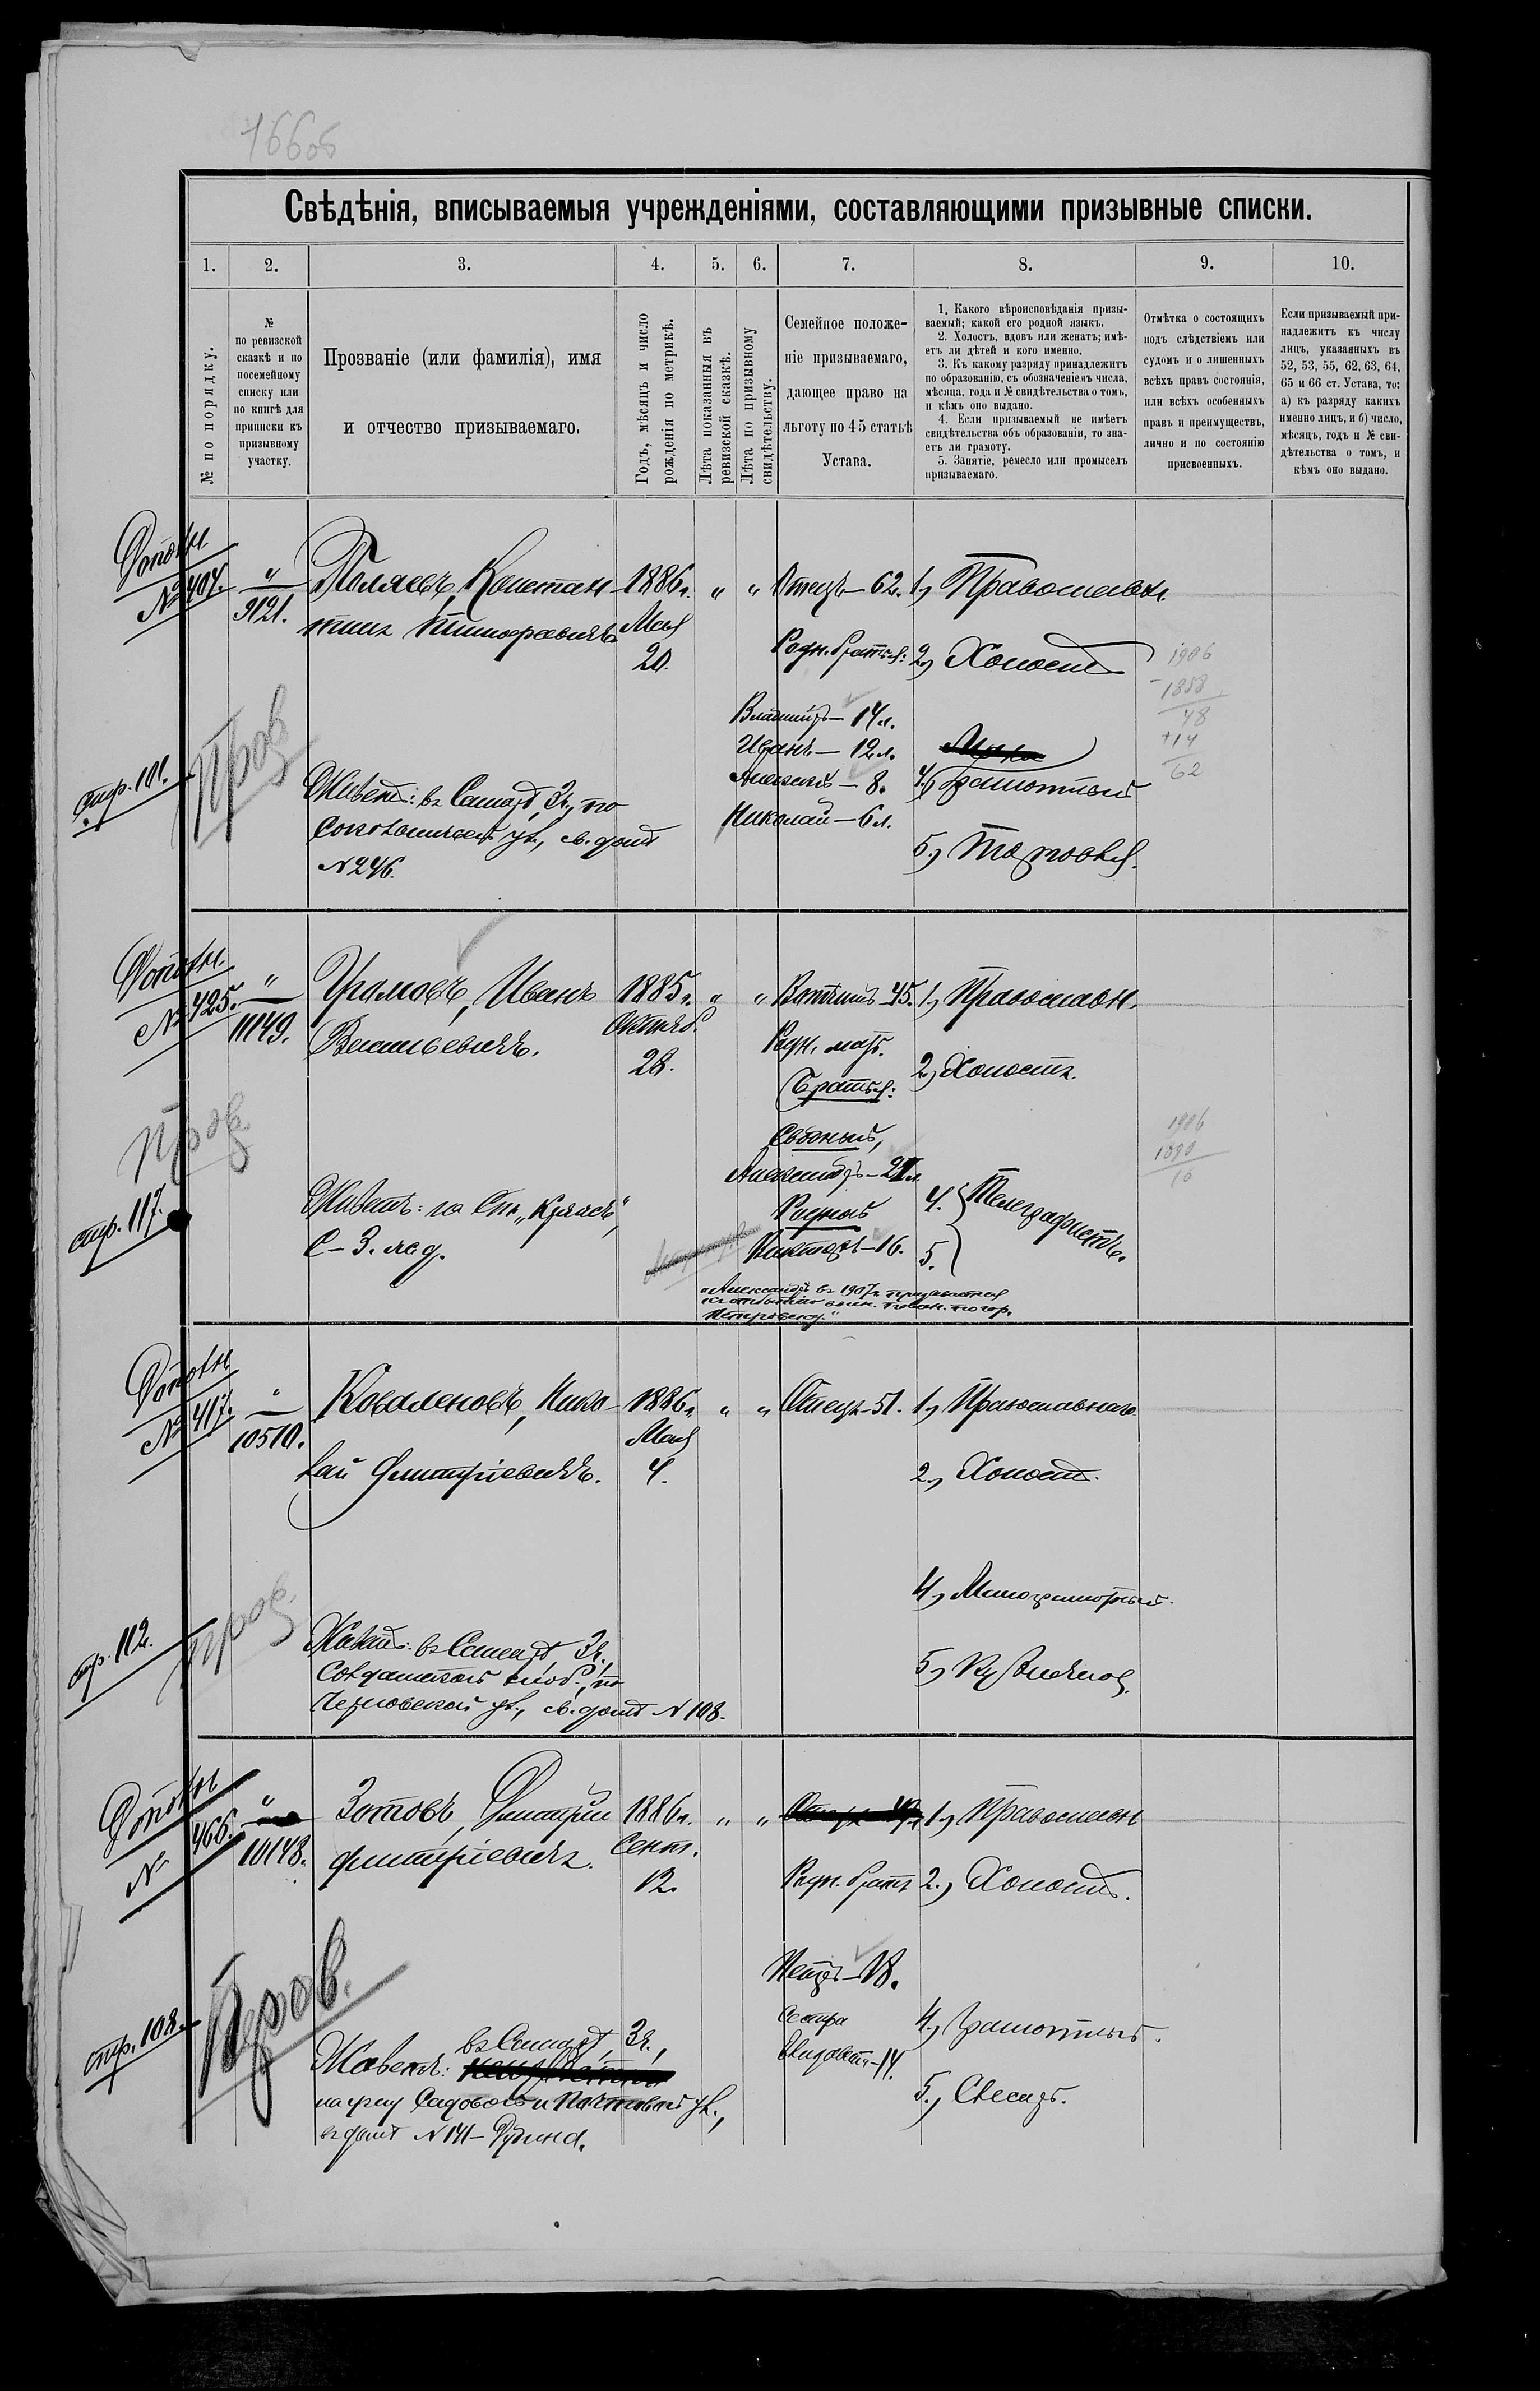 166об
Свѣдѣнія, вписываемыя учрежденіями, составляющими призывные списки.
1. 2. 3. 4. 5. 6. 7. 8. 9. 10.
№ по порядку.
№
по ревизской
сказкѣ и по
посемейному
списку или
по книгѣ для
приписки къ
призывному
участку.
Прозваніе (или фамилія), имя
и отчество призываемаго.
Годъ, мѣсяцъ и число
рожденія по метрикѣ.
Лѣта показанныя въ
ревизской сказкѣ.
Лѣта по призывному
свидѣтельству.
Семейное положе-
ніе призываемаго,
дающее право на
льготу по 45 статьѣ
Устава.
1. Какого вѣроисповѣданія призы-
ваемый; какой его родной языкъ.
2. Холостъ, вдовъ или женатъ; имѣ-
етъ ли дѣтей и кого именно.
3. Къ какому разряду принадлежитъ
по образованію, съ обозначеніемъ числа,
мѣсяца, года и № свидѣтельства о томъ,
и кѣмъ оно выдано.
4. Если призываемый не имѣетъ
свидѣтельства объ образованіи, то зна-
етъ ли грамоту.
5. Занятіе, ремесло или промыселъ
призываемаго.
Отмѣтка о состоящихъ
подъ слѣдствіемъ или
судомъ и о лишенныхъ
всѣхъ правъ состоянія,
или всѣхъ особенныхъ
правъ и преимуществъ,
лично и по состоянію
присвоенныхъ.
Если призываемый при-
надлежитъ къ числу
лицъ, указанныхъ въ
52, 53, 55, 62, 63, 64,
65 и 66 ст. Устава, то:
а) къ разряду какихъ
именно лицъ, и б) число,
мѣсяцъ, годъ и № сви-
дѣтельства о томъ, и
кѣмъ оно выдано.
Дополн.
№ 407.
"
9121.
Поляевъ, Констан-
тинъ Тимофеевичъ
1886г.
Мая
20.
" "
Отецъ—62.
Родн. братья:
Владиміръ—14л.
Иванъ—12л.
Алексѣй—8.
Николай—6л.
1, Православн.
2, Холостъ
4, Грамотный
5, Торговля.
1906
-1858
48
+14
62
стр. 101.
Пров
Живетъ: въ Самарѣ, 3ч., по
Соколовичьей ул., св. домъ
№ 246.
Дополн.
№ 425.
"
11149.
Урамовъ, Иванъ
Васильевичъ.
1885г.
Октяб.
28.
" "
Вотчимъ—45.
Родн. мать.
Братья:
Сводный,
Александръ—21л.
Родной
Викторъ—16.
1, Православн.
2, Холостъ.
4. } Телеграфистъ.
5.
1906
1890
16
Пров.
стр. 117.
Живетъ: на Ст. „Кряжъ",
С-З. ж.д.
„Александръ въ 1907г. призывается
къ отбытію воин. повин. по гор.
Петровску."
Дополн.
№ 417.
"
10510.
Коваленовъ, Нико-
лай Дмитріевичъ.
1886г.
Мая
4.
" "
Отецъ—51.
1, Православнаго
2, Холостъ.
4, Малограмотный.
5,
стр. 112.
пров.
Живетъ: въ Самарѣ, 3ч.,
Солдатской слоб., по
Черновской ул., св. домъ № 108.
Дополн
№ 466.
"
10148.
Зотовъ, Дмитрій
Дмитріевичъ.
1886г.
Сент.
12.
" "
Родн. братъ
Петръ—18.
Сестра
Елизавета—14.
1, Православн
2, Холостъ.
4, Грамотный.
5, Слесарь.
стр. 108.
Пров.
Живетъ: въ Самарѣ, 3ч.,
на углу Садовой и Почтовой ул.,
въ домѣ № 141—